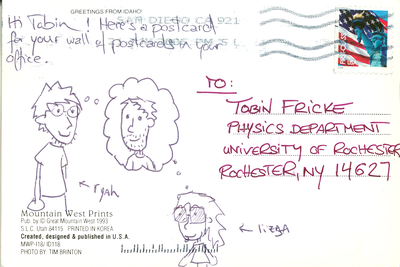 GREETINGS FROM IDAHO!
SAN DIEGO CA 921
Hi Tobin! Here's a postcard
for your wall of postcards in your
office.
TO:
TOBIN FRICKE
PHYSICS DEPARTMENT
UNIVERSITY OF ROCHESTER
ROCHESTER, NY 14627
ryan
lizza
Mountain West Prints
Pub. by © Great Mountain West 1993
S.L.C. Utah 84115 · PRINTED IN KOREA
Created, designed & published in U.S.A.
MWP-I18/ ID118
PHOTO BY: TIM BRINTON